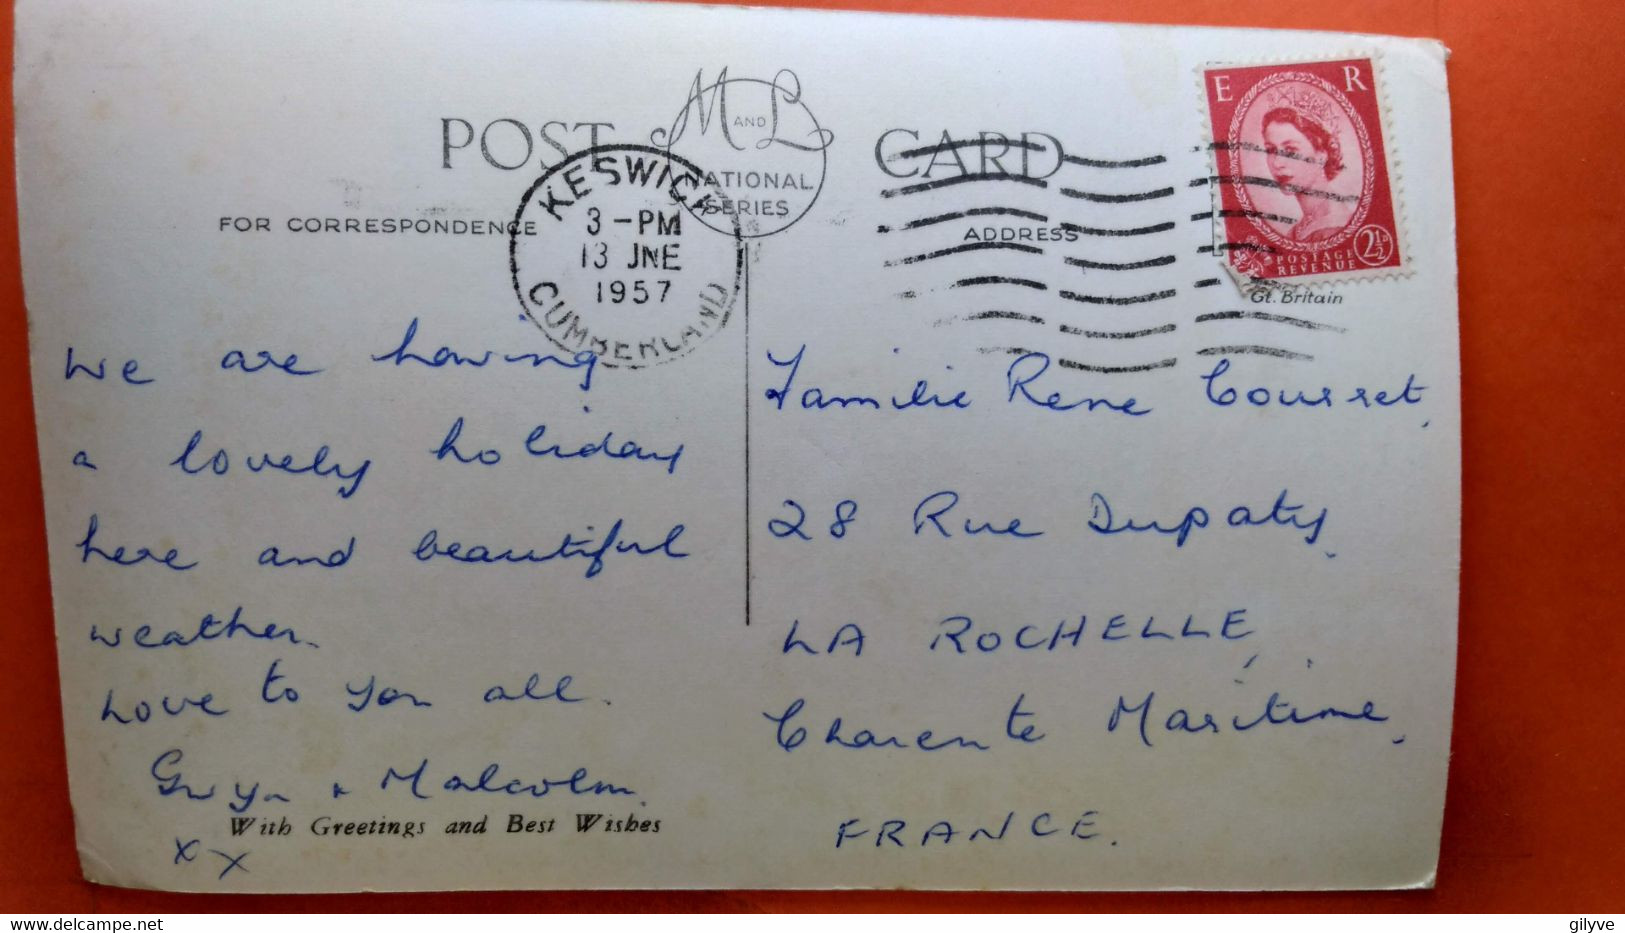 POST CARD
M AND L
NATIONAL
SERIES
FOR CORRESPONDENCE
ADDRESS
KESWICK
3 - PM
13 JNE
1957
CUMBERLAND
E R
POSTAGE
REVENUE
2½D
Gt. Britain
We are having
a lovely holiday
here and beautiful
weather.
Love to you all.
Gwyn & Malcolm.
x x
With Greetings and Best Wishes
Familie Rene Courset,
28 Rue Dupaty,
LA ROCHELLE,
Charente Maritime,
FRANCE.
www.delcampe.net
gilyve